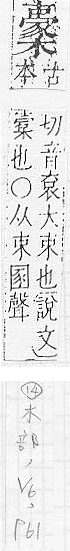 㯻
古
本
切音袞大束也說文】
橐也〇从束圂聲
⑭木部,V6,P61